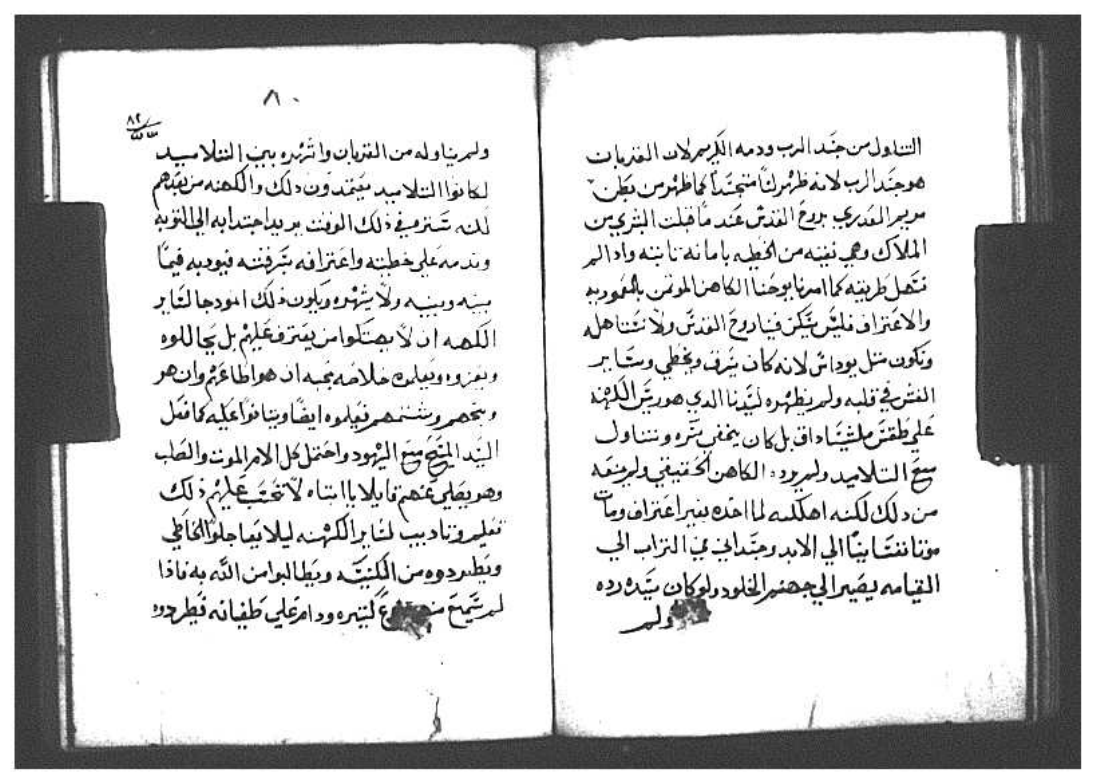 التناول من جسد الرب ودمه الكريم لان القربان
هو جسد الرب لانه ظهر لنا متجسدا كما ظهر من بطن
مريم العدري بروح القدس عند ما قبلت البشري من
الملاك وهي نقيه من الخطيه بامانه ثابته واذا لم
نتهل طريقه كما امرنا يوحنا الكاهن الموتمن بالمعموديه
والاعتراف فليس يسكن فينا روح القدس ولا نستاهله
ونكون مثل يوداس لانه كان يسرق ويخطي ويساير
الغش في قلبه ولم يظهره لسيدنا الدي هو ريس الكهنه
علي طقس ملشيساداق بل كان يخفي سره ويتناول
مع التلاميد ولم يرده الكاهن الحقيقي ولم يمنعه
من دلك لكنه اهلكه لما اخده بغير اعتراف ومات
موتا نفسانيا الي الابد وجسداني في التراب الي
القيامه يصير الي جهنم الخلود ولو كان سيده رده
ولم
٨٠
٨٢
ولم يناوله من القربان واشهره بين التلاميد
لكانوا التلاميد يعتمدون دلك والكهنه من بعدهم
لكنه ستره في ذلك الوقت يريد اجتدابه الي التوبه
وندمه علي خطيته واعترافه بسرقته فيوديه فيما
بينه وبينه ولا يشهره ويكون ذلك انمودجا لساير
الكهنه ان لا يهتكوا من يعترف عليهم بل يحاللوه
ويعزوه ويعلموه خلاصه بمحبه ان هو اطاعهم وان هر
وبخهم وشتمهم فيعلموه ايضا ويتانوا عليه كما فعل
السيد المسيح مع اليهود واحتمل كل الالام الموت والصلب
وهو يصلي عنهم قايلا يا ابتاه لا تحسب عليهم ذلك
تعليم وتاديب لساير الكهنه ليلا يعاجلوا الخاطي
ويطردوه من الكنيسه ويطالبوا من الله به فاذا
لم يسمع كثيره ودام علي طغيانه فيطردوه